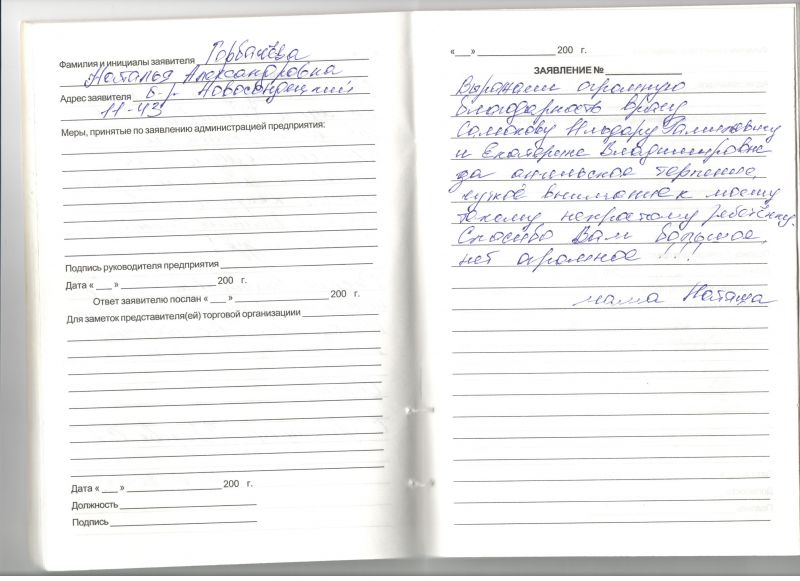 Фамилия и инициалы заявителя Горбачёва
Наталья Александровна
Адрес заявителя б-р. Новосондецкий
11-43
Меры, принятые по заявлению администрацией предприятия:
Подпись руководителя предприятия
Дата « » 200 г.
Ответ заявителю послан « » 200 г.
Для заметок представителя(ей) торговой организациии
Дата « » 200 г.
Должность
Подпись
« » 200 г.
ЗАЯВЛЕНИЕ №
Выражаем огромную
благодарность врачу
Ильдару
и Екатерине Владимировне
за ангельское терпение,
чуткое внимание к моему
такому непростому ребёнку.
Спасибо Вам большое,
нет огромное !!!
мама Наташа